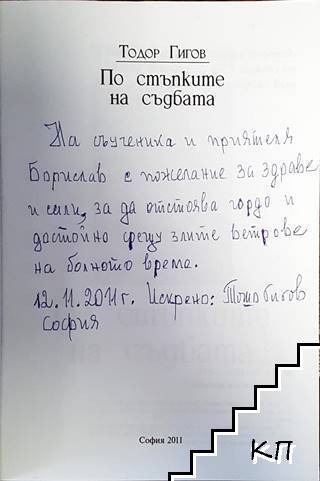 Тодор Гигов
По стъпките
на съдбата
На съученика и приятеля
Борислав с пожелание за здраве
и сили, за да отстоява гордо и
достойно срещу злите ветрове
на болното време.
12.11.2011г. Искрено: Тошо Гигов
София
София 2011
КП